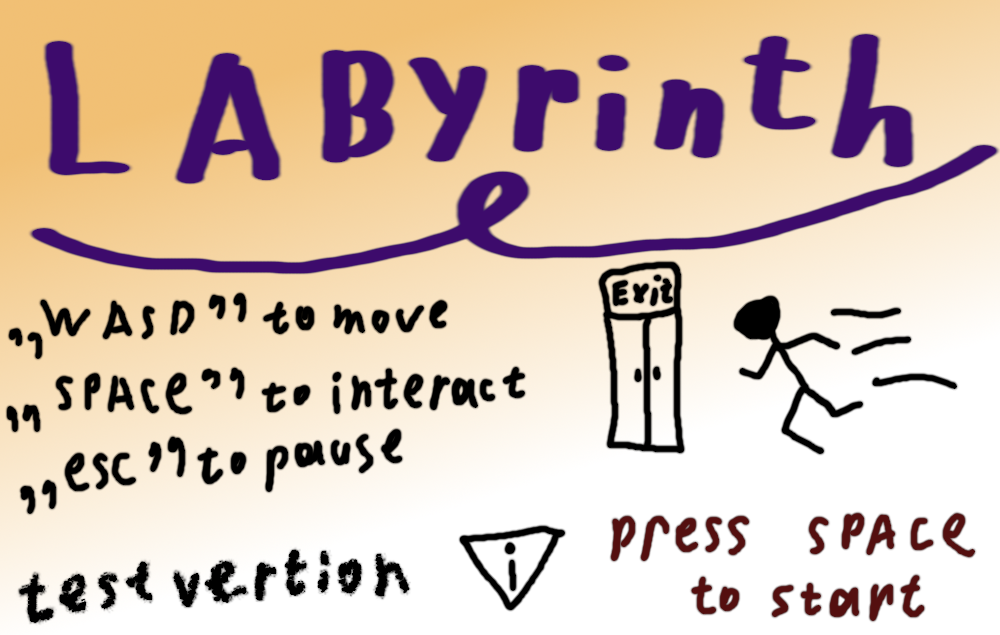 LAByrinth
„WASD” to move
Exit
„SPACE” to interact
„esc” to pause
test vertion
i
press SPACE
to start